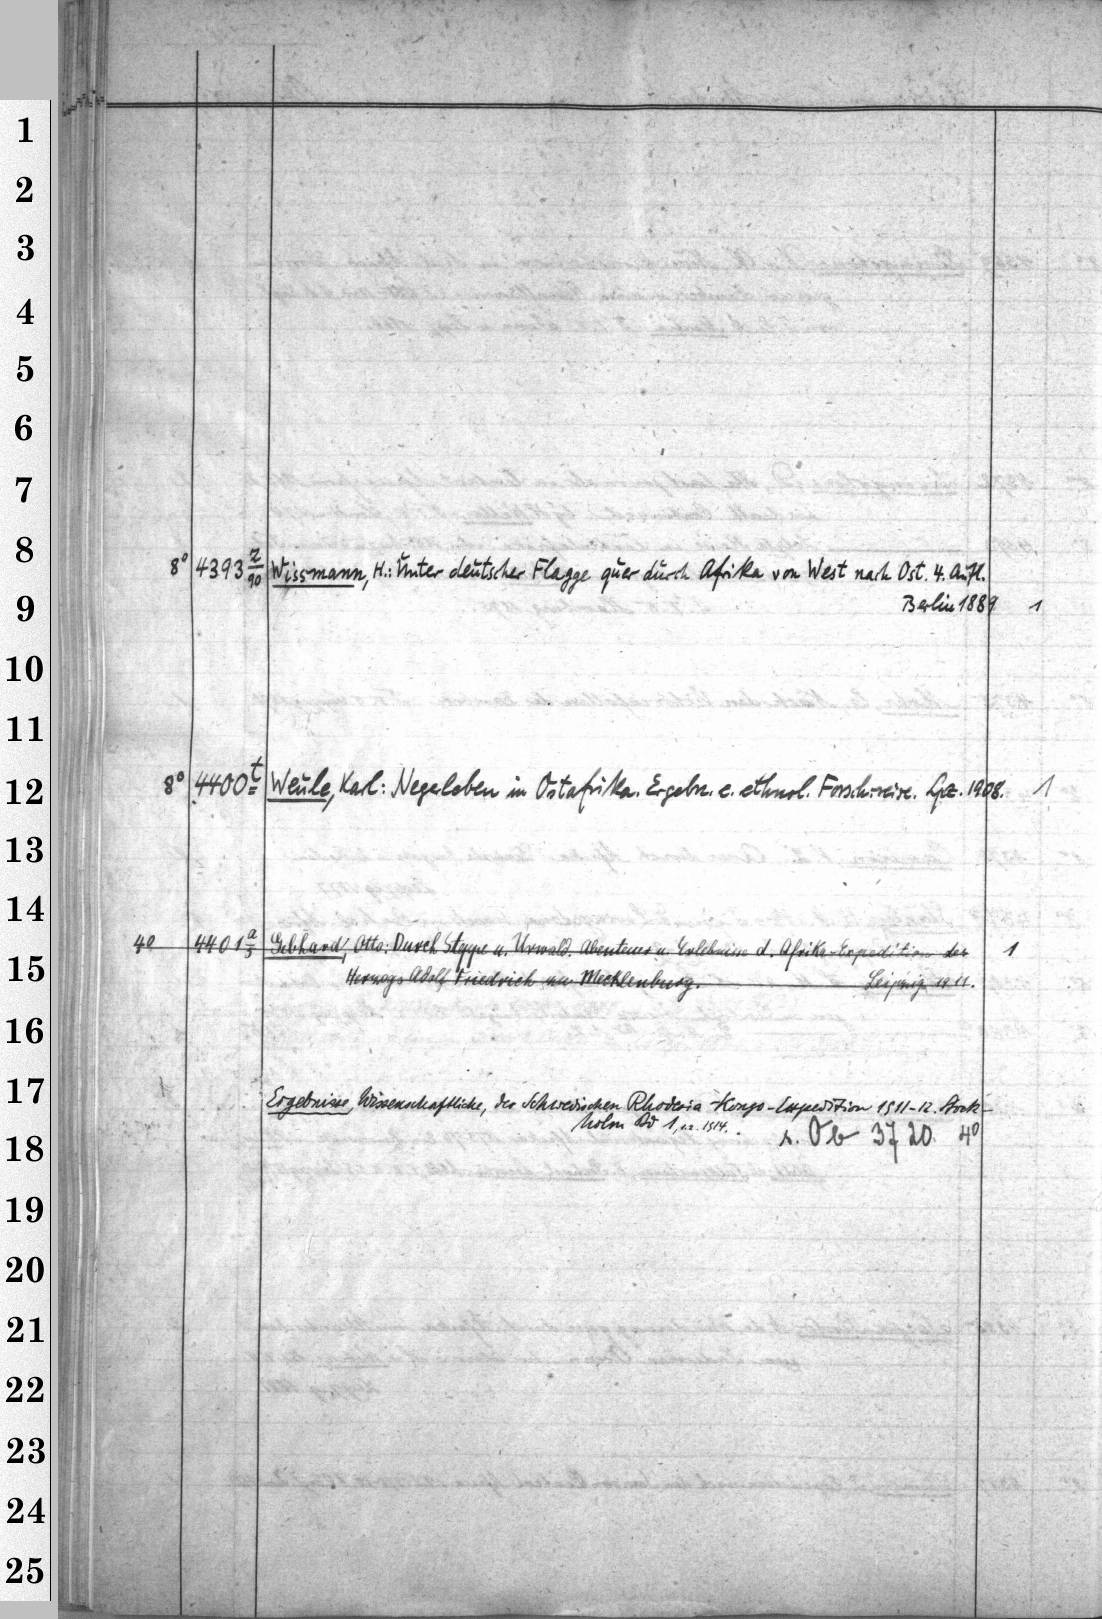 1
2
3
4
5
6
7
8
9
10
11
12
13
14
15
16
17
18
19
20
21
22
23
24
25
8° 4393 z/90 Wissmann, H.: Unter deutscher Flagge quer durch Afrika von West nach Ost. 4. Aufl.
Berlin 1889 1
8° 4400 t Weule, Karl: Negerleben in Ostafrika. Ergebn. e. ethnol. Forsch.reise. Lpz. 1908. 1
4° 4401 a/5 Gebhard, Otto: Durch Steppe u. Urwald. Abenteuer u. Erlebnisse d. Afrika-Expedition des 1
Herzogs Adolf Friedrich zu Mecklenburg. Leipzig 1911.
Ergebnisse, Wissenschaftliche, der Schwedischen Rhodesia-Kongo-Expedition 1911-12. Stock-
holm Bd 1, 1914.
s. Ob 3720 4°